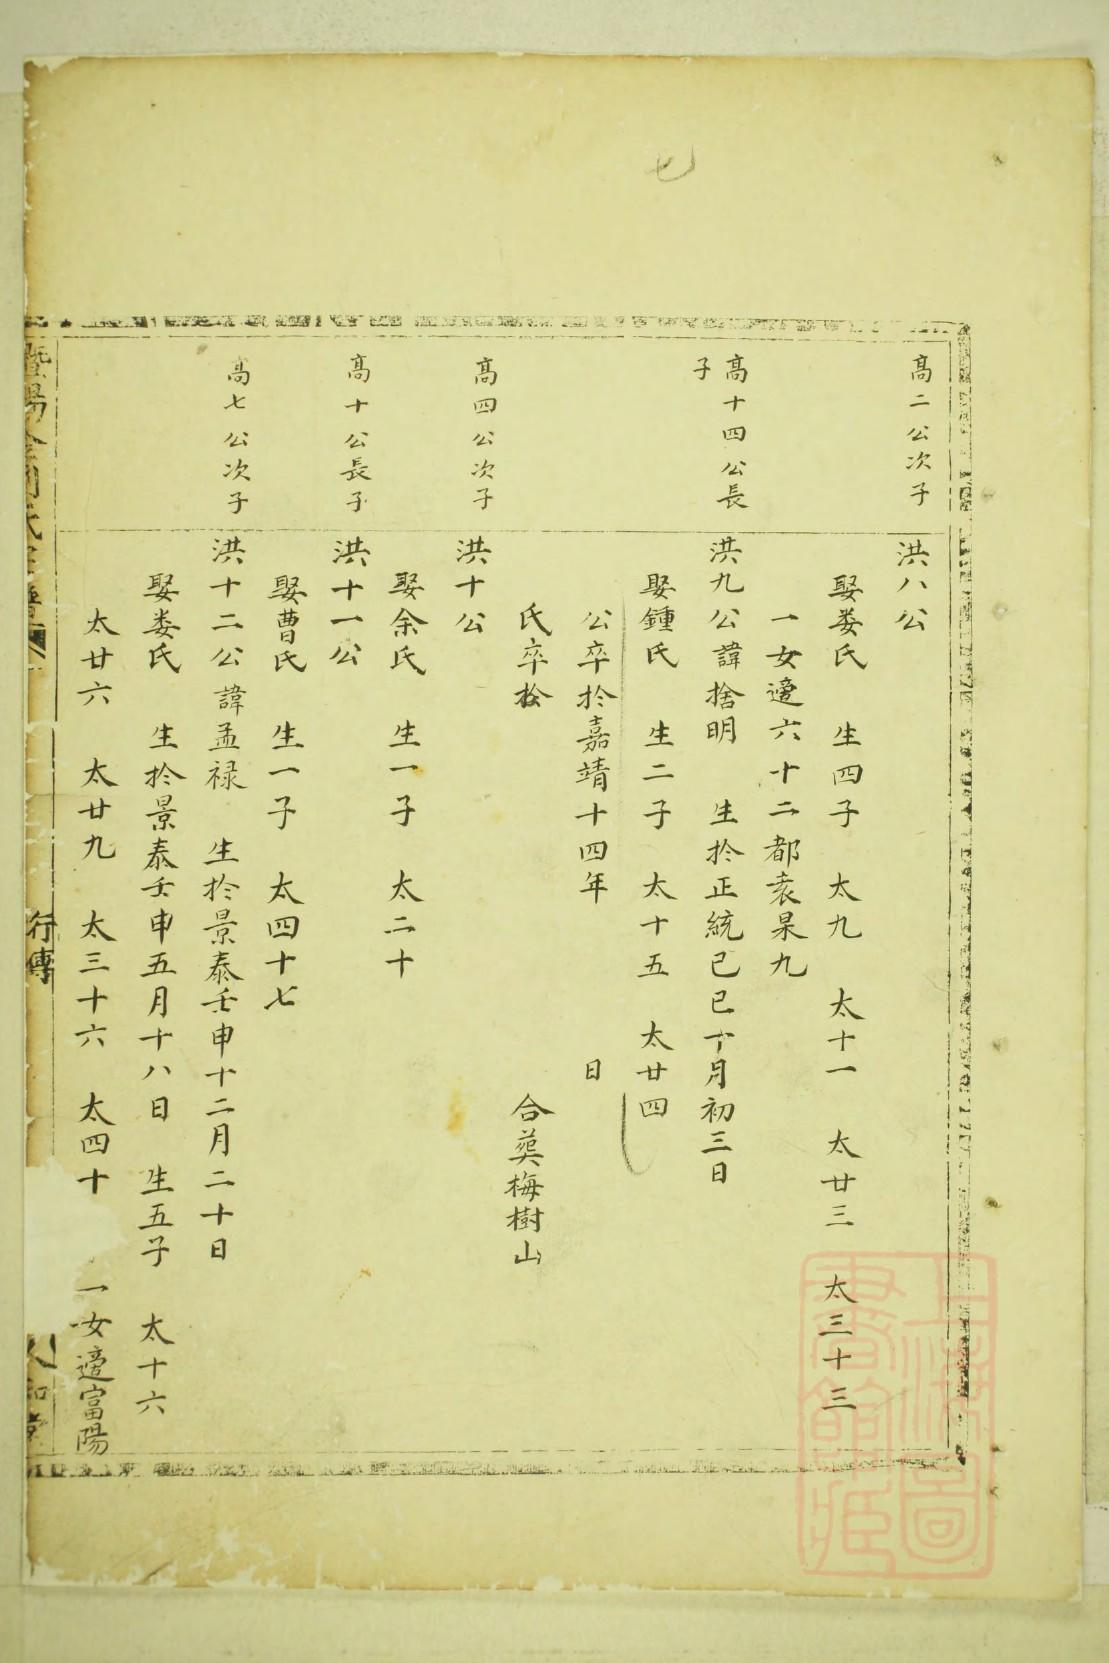 七
高二公次子
洪八公
娶娄氏 生四子 太九 太十一 太廿三 太三十三
一女適六十二都袁杲九
高十四公長
子
洪九公諱捨明 生扵正統己巳十月初三日
娶鍾氏 生二子 太十五 太廿四
公卒扵嘉靖十四年 日
氏卒扵 合葬梅樹山
高四公次子
洪十公
娶余氏 生一子 太二十
高十公長子
洪十一公
娶曹氏 生一子 太四十七
高七公次子
洪十二公諱孟禄 生扵景泰壬申十二月二十日
娶娄氏 生扵景泰壬申五月十八日 生五子 太十六
太廿六 太廿九 太三十六 太四十 一女適富陽
暨陽
行傳
上海圖書館藏